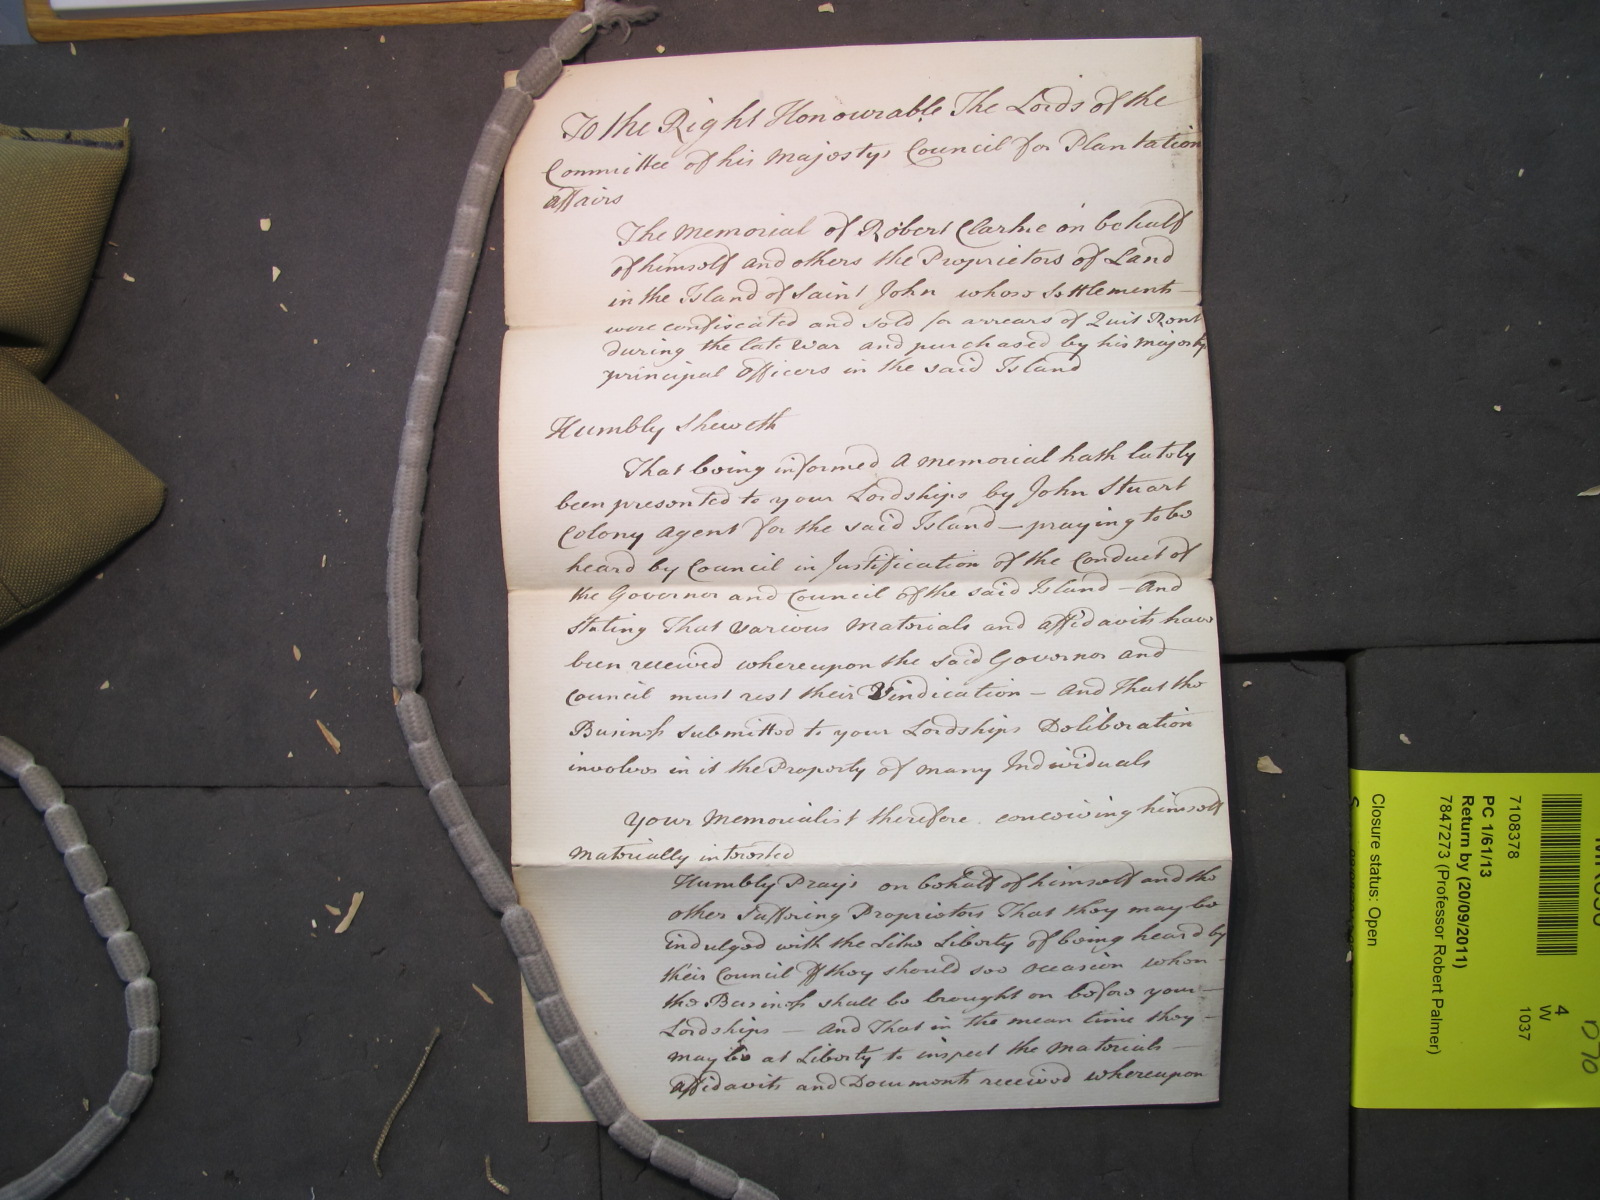 To the Right Honourable The Lords of the
Committee of his Majestys Council for Plantation
affairs
The Memorial of Robert Clarke on behalf
of himself and others the Proprietors of Land
in the Island of Saint John whose Settlements
were confiscated and sold for arrears of Quit Rent
during the late War and purchased by his Majestys
principal Officers in the said Island
Humbly Sheweth
That being informed a Memorial hath lately
been presented to your Lordships by John Stuart
Colony Agent for the said Island — praying to be
heard by Council in Justification of the Conduct of
the Governor and Council of the said Island — And
stating That various Materials and affidavits have
been received whereupon the said Governor and
Council must rest their Vindication — and That the
Business submitted to your Lordships Deliberation
involves in it the Property of many Individuals
Your Memorialist therefore conceiving himself
materially interested
Humbly Prays on behalf of himself and the
other Suffering Proprietors That they may be
indulged with the Like Liberty of being heard by
their Council If they should see occasion when
the Business shall be brought on before your —
Lordships — and That in the mean time they —
may be at Liberty to inspect the Materials —
affidavits and Documents received whereupon
7108378
PC 1/61/13
Return by (20/09/2011)
7847273 (Professor Robert Palmer)
Closure status: Open
4
W
1037
D70